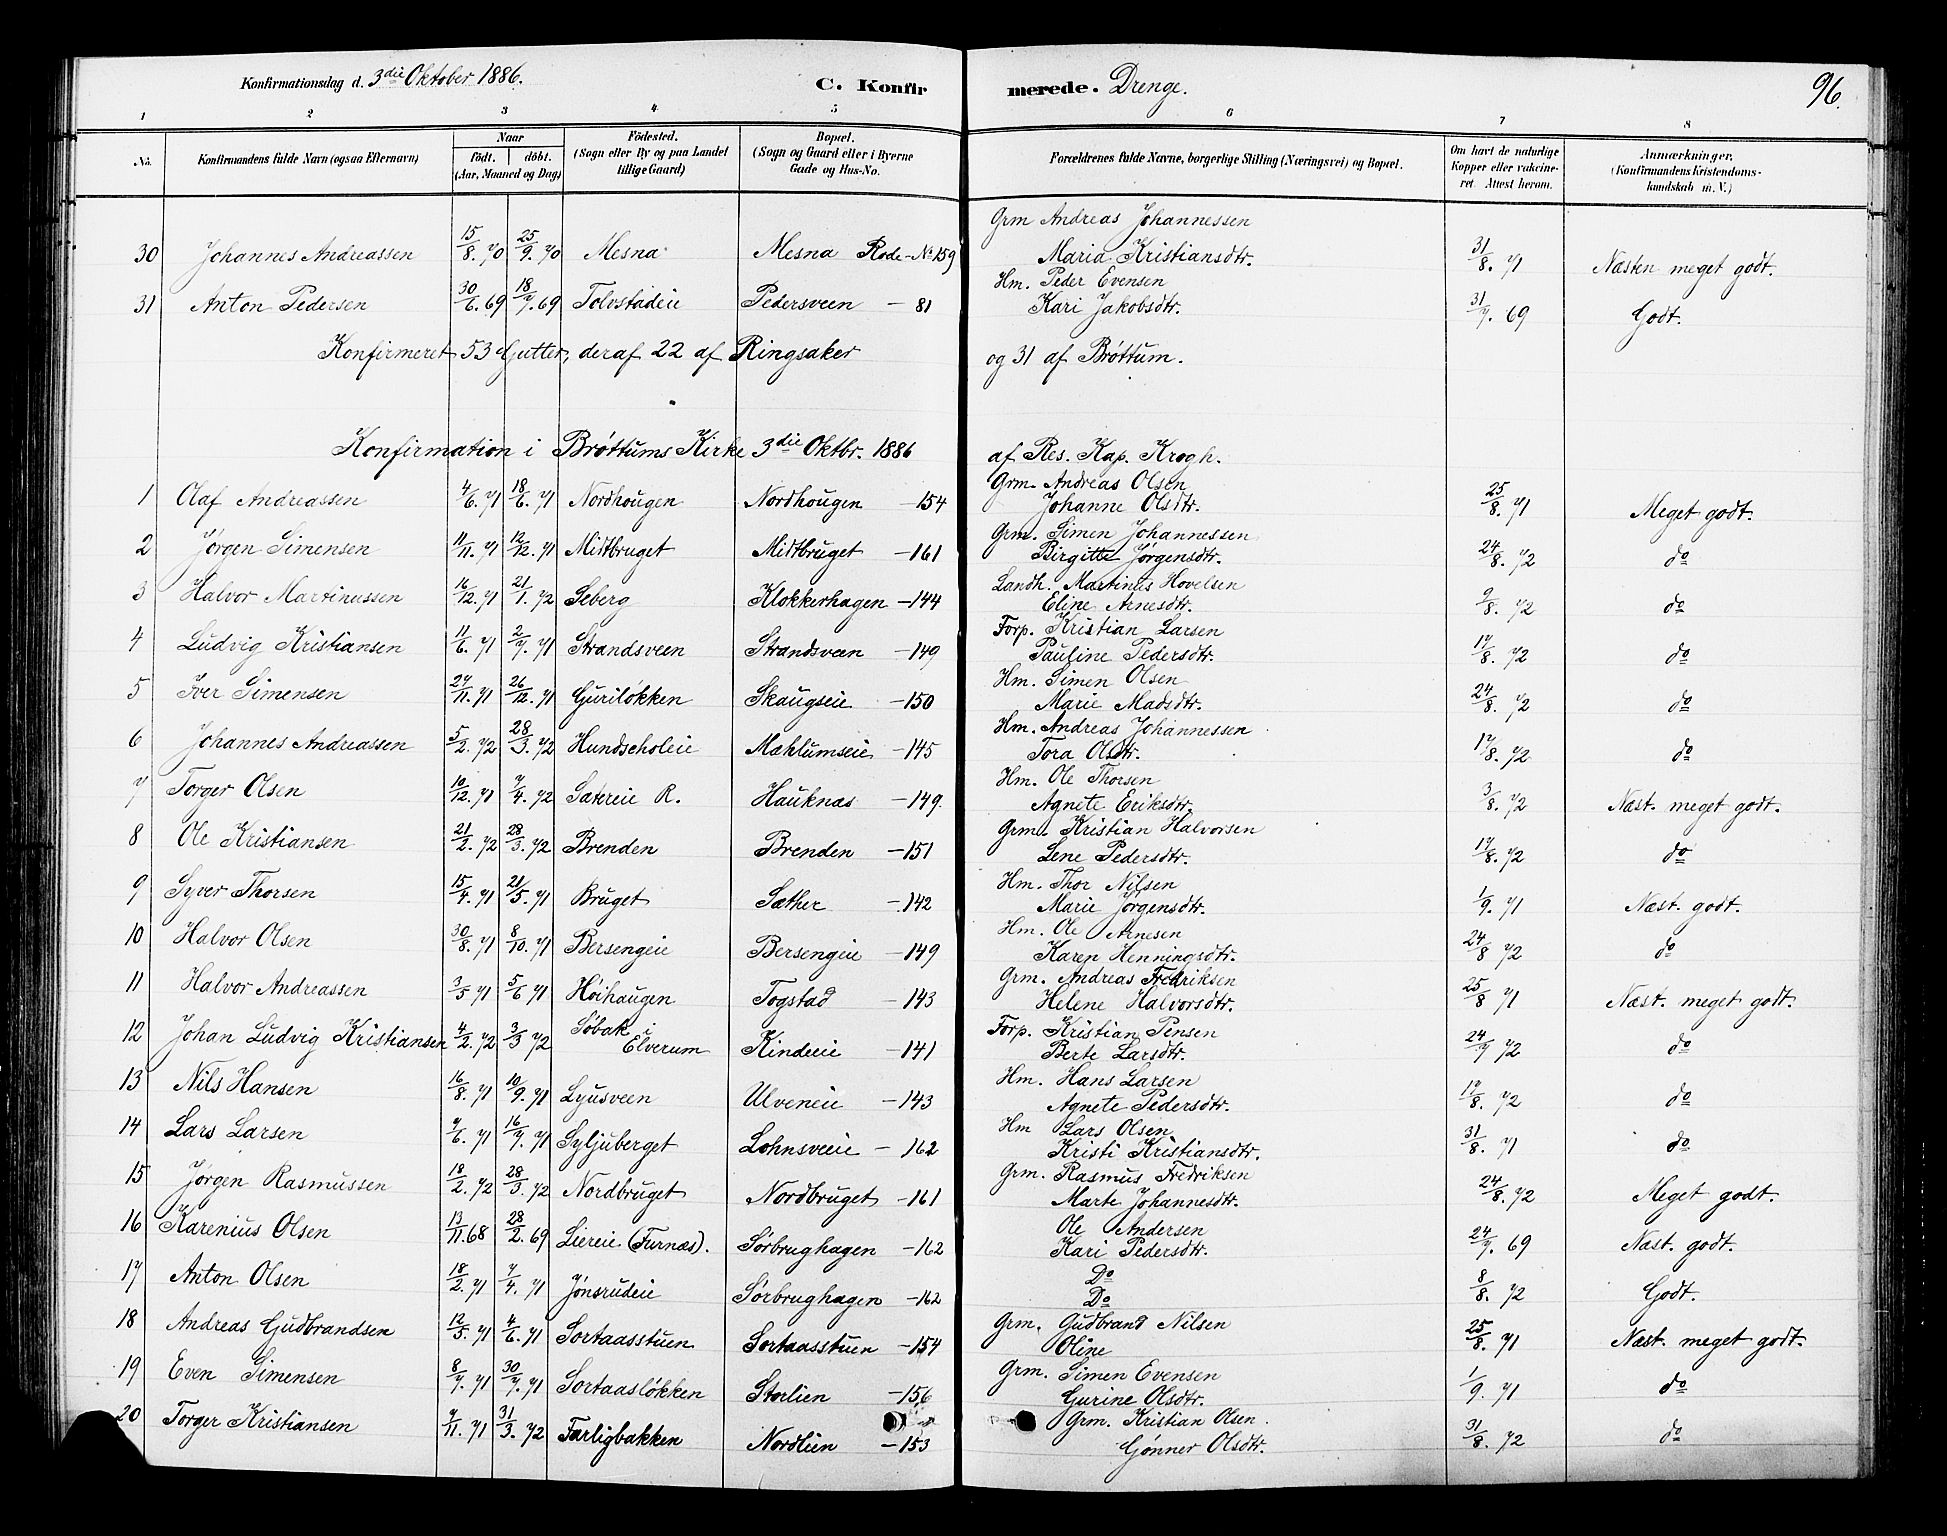 Konfirmationsdag d. 3die Oktober 1886. C. Konfirmerede. Drenge. 96.
1 2 3 4 5 6 7 8
No. Konfirmandens fulde Navn (ogsaa Efternavn) Naar født. døbt. (Aar, Maaned og Dag) Fødested. (Sogn eller By og paa Landet tillige Gaard) Bopæl. (Sogn og Gaard eller i Byerne Gade og Hus-No. Forældrenes fulde Navne, borgerlige Stilling (Næringsvei) og Bopæl. Om havt de naturlige Kopper eller vakcineret. Attest herom. Anmærkninger. (Konfirmandens Kristendomskundskab m. V.)
30 Johannes Andreassen 15/8. 70 25/9. 70 Mesna Mesna Rode-No 159 Grm Andreas Johannessen Maria Kristiansdtr. 31/8. 71 Næsten meget godt.
31 Anton Pedersen 30/6. 69 18/7. 69 Tolvstadeie Pedersveen — 81 Hm. Peder Evensen Kari Jakobsdtr. 31/7. 69 Godt.
Konfirmeret 53 Gutter, deraf 22 af Ringsaker og 31 af Brøttum.
Konfirmation i Brøttums Kirke 3die Oktbr. 1886 af Res. Kap. Krogh.
1 Olaf Andreassen 4/6. 71 18/6. 71 Nordhougen Nordhougen —154 Grm. Andreas Olsen Johanne Olsdtr. 25/8. 71 Meget godt.
2 Jørgen Simensen 11/11. 71 12/12. 71 Midtbruget Midtbruget —161 Grm. Simen Johannessen Birgitte Jørgensdtr. 24/8. 72 do
3 Halvor Martinussen 16/12. 71 21/1. 72 Seberg Klokkerhagen —144 Landh. Martinus Hovelsen Eline Arnesdtr. 9/8. 72 do
4 Ludvig Kristiansen 11/6. 71 2/7. 71 Strandsveen Strandsveen —149 Forp. Kristian Larsen Pauline Pedersdtr. 17/8. 72 do
5 Iver Simensen 27/11. 71 26/12. 71 Guriløkken Skaugseie —150 Hm. Simen Olsen Marie Madsdtr. 24/8. 72 do
6 Johannes Andreassen 5/2. 72 28/3. 72 Hundscholeie Mæhlumseie —145 Hm. Andreas Johannessen Tora Olsdtr. 17/8. 72 do
7 Torger Olsen 10/12. 71 7/4. 72 Sætereie R. Hauknæs —149. Hm. Ole Thorsen Agnete Eriksdtr. 3/8. 72 Næst. meget godt.
8 Ole Kristiansen 21/2. 72 28/3. 72 Brenden Brenden —151 Grm. Kristian Halvorsen Lene Pedersdtr. 17/8. 72 do
9 Syver Thorsen 15/4. 71 21/5. 71 Bruget Sæther —142 Hm. Thor Nilsen Marie Jørgensdtr. 1/9. 71 Næst. godt.
10 Halvor Olsen 30/8. 71 8/10. 71 Bersengeie Bersengeie —149 Hm. Ole Arnesen Karen Henningsdtr. 24/8 72 do
11 Halvor Andreassen 3/5 71 5/6 71 Høihaugen Togstad —143 Grm. Andreas Fredriksen Helene Halvorsdtr. 25/8 71 Næst. meget godt.
12 Johan Ludvig Kristiansen 4/2. 72 3/3 72 Søbak i Elverum Kindeie —141 Forp. Kristian Jensen Berte Larsdtr. 24/7 72 do
13 Nils Hansen 16/8. 71 10/9. 71 Lyusveen Ulveneie —143 Hm. Hans Larsen Agnete Pedersdtr. 17/8. 72 do
14 Lars Larsen 7/6. 71 16/7. 71 Syljuberget Lohnsveeie — 162 Hm Lars Olsen Kristi Kristiansdtr. 31/8. 71 do
15 Jørgen Rasmussen 18/2. 72 28/3. 72 Nordbruget Nordbruget —161 Grm. Rasmus Fredriksen Marte Johannesdtr. 24/8. 72 Meget godt.
16 Karenius Olsen 13/11. 68 28/2. 69 Liereie (Furnæs). Sørbrughagen —162 Ole Andersen Kari Pedersdtr. 24/7. 69 Næst. godt.
17 Anton Olsen 18/2. 71 7/4. 71 Jønsrudeie Sørbrughagen —162 Do Do 8/8. 72 Godt.
18 Andreas Gudbrandsen 12/5. 71 4/6. 71 Sortaasstuen Sortaasstuen —154 Grm. Gudbrand Nilsen Oline 25/8. 71 Næst. meget godt.
19 Even Simensen 8/7. 71 30/7. 71 Sortaasløkken Storlien —156 Grm. Simen Evensen Gurine Olsdtr. 1/9. 71 do
20 Torger Kristiansen 7/11. 71 31/3. 72 Farligbakken Nordlien —153 Grm. Kristian Olsen. Gønner Olsdtr. 31/8. 72 do